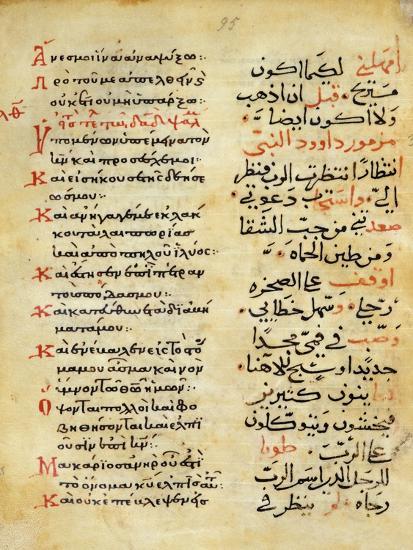 95
Ἄνες μοι ἵνα ἀναψύξω:
Πρὸ τοῦ με ἀπελθεῖν
οὐκέτι οὐ μὴ ὑπάρξω:
λθ
Ὑπομένων ὑπέμεινα τὸν
κν καὶ προσέσχε μοι:
Καὶ εἰσήκουσε τῆς δεήσε
ώς μου:
Καὶ ἀνήγαγέ με ἐκ λάκ
κου ταλαιπωρίας
καὶ ἀπὸ πηλοῦ ἰλύος:
Καὶ ἔστησεν ἐπὶ πέτραν
τοὺς πόδας μου:
Καὶ κατεύθυνε τὰ διαβή
ματά μου:
Καὶ ἐνέβαλεν εἰς τὸ στό
μα μου ᾆσμα καινὸν
ὕμνον τῷ θω ἡμῶν:
Ὄψονται πολλοὶ καὶ φο
βηθήσονται καὶ ἐλπι
οῦσιν ἐπὶ κν:
Μακάριος ἀνὴρ οὗ ἐστι
τὸ ὄνομα κυ ἐλπὶς αὐτοῦ
Καὶ οὐκ ἐπέβλεψεν εἰς
امهلني لكيما اكون
مستريح قبل ان اذهب
ولا اكون ايضا
مزمور داوود النبي
انتظارا انتظرت الرب فنظر
الي واستجاب دعوتي
اصعدني من جب الشقا
ومن طين الحماه
اوقف على الصخره
رجلاه وسهل خطاي
وصب في فمي مجدا
جديدا وسبح لالاهنا
ينون كثيرين
فيخشون ويتوكلون
على الرب طوبا
للرجل الذي اسم الرب
رجاه لم ينظر في